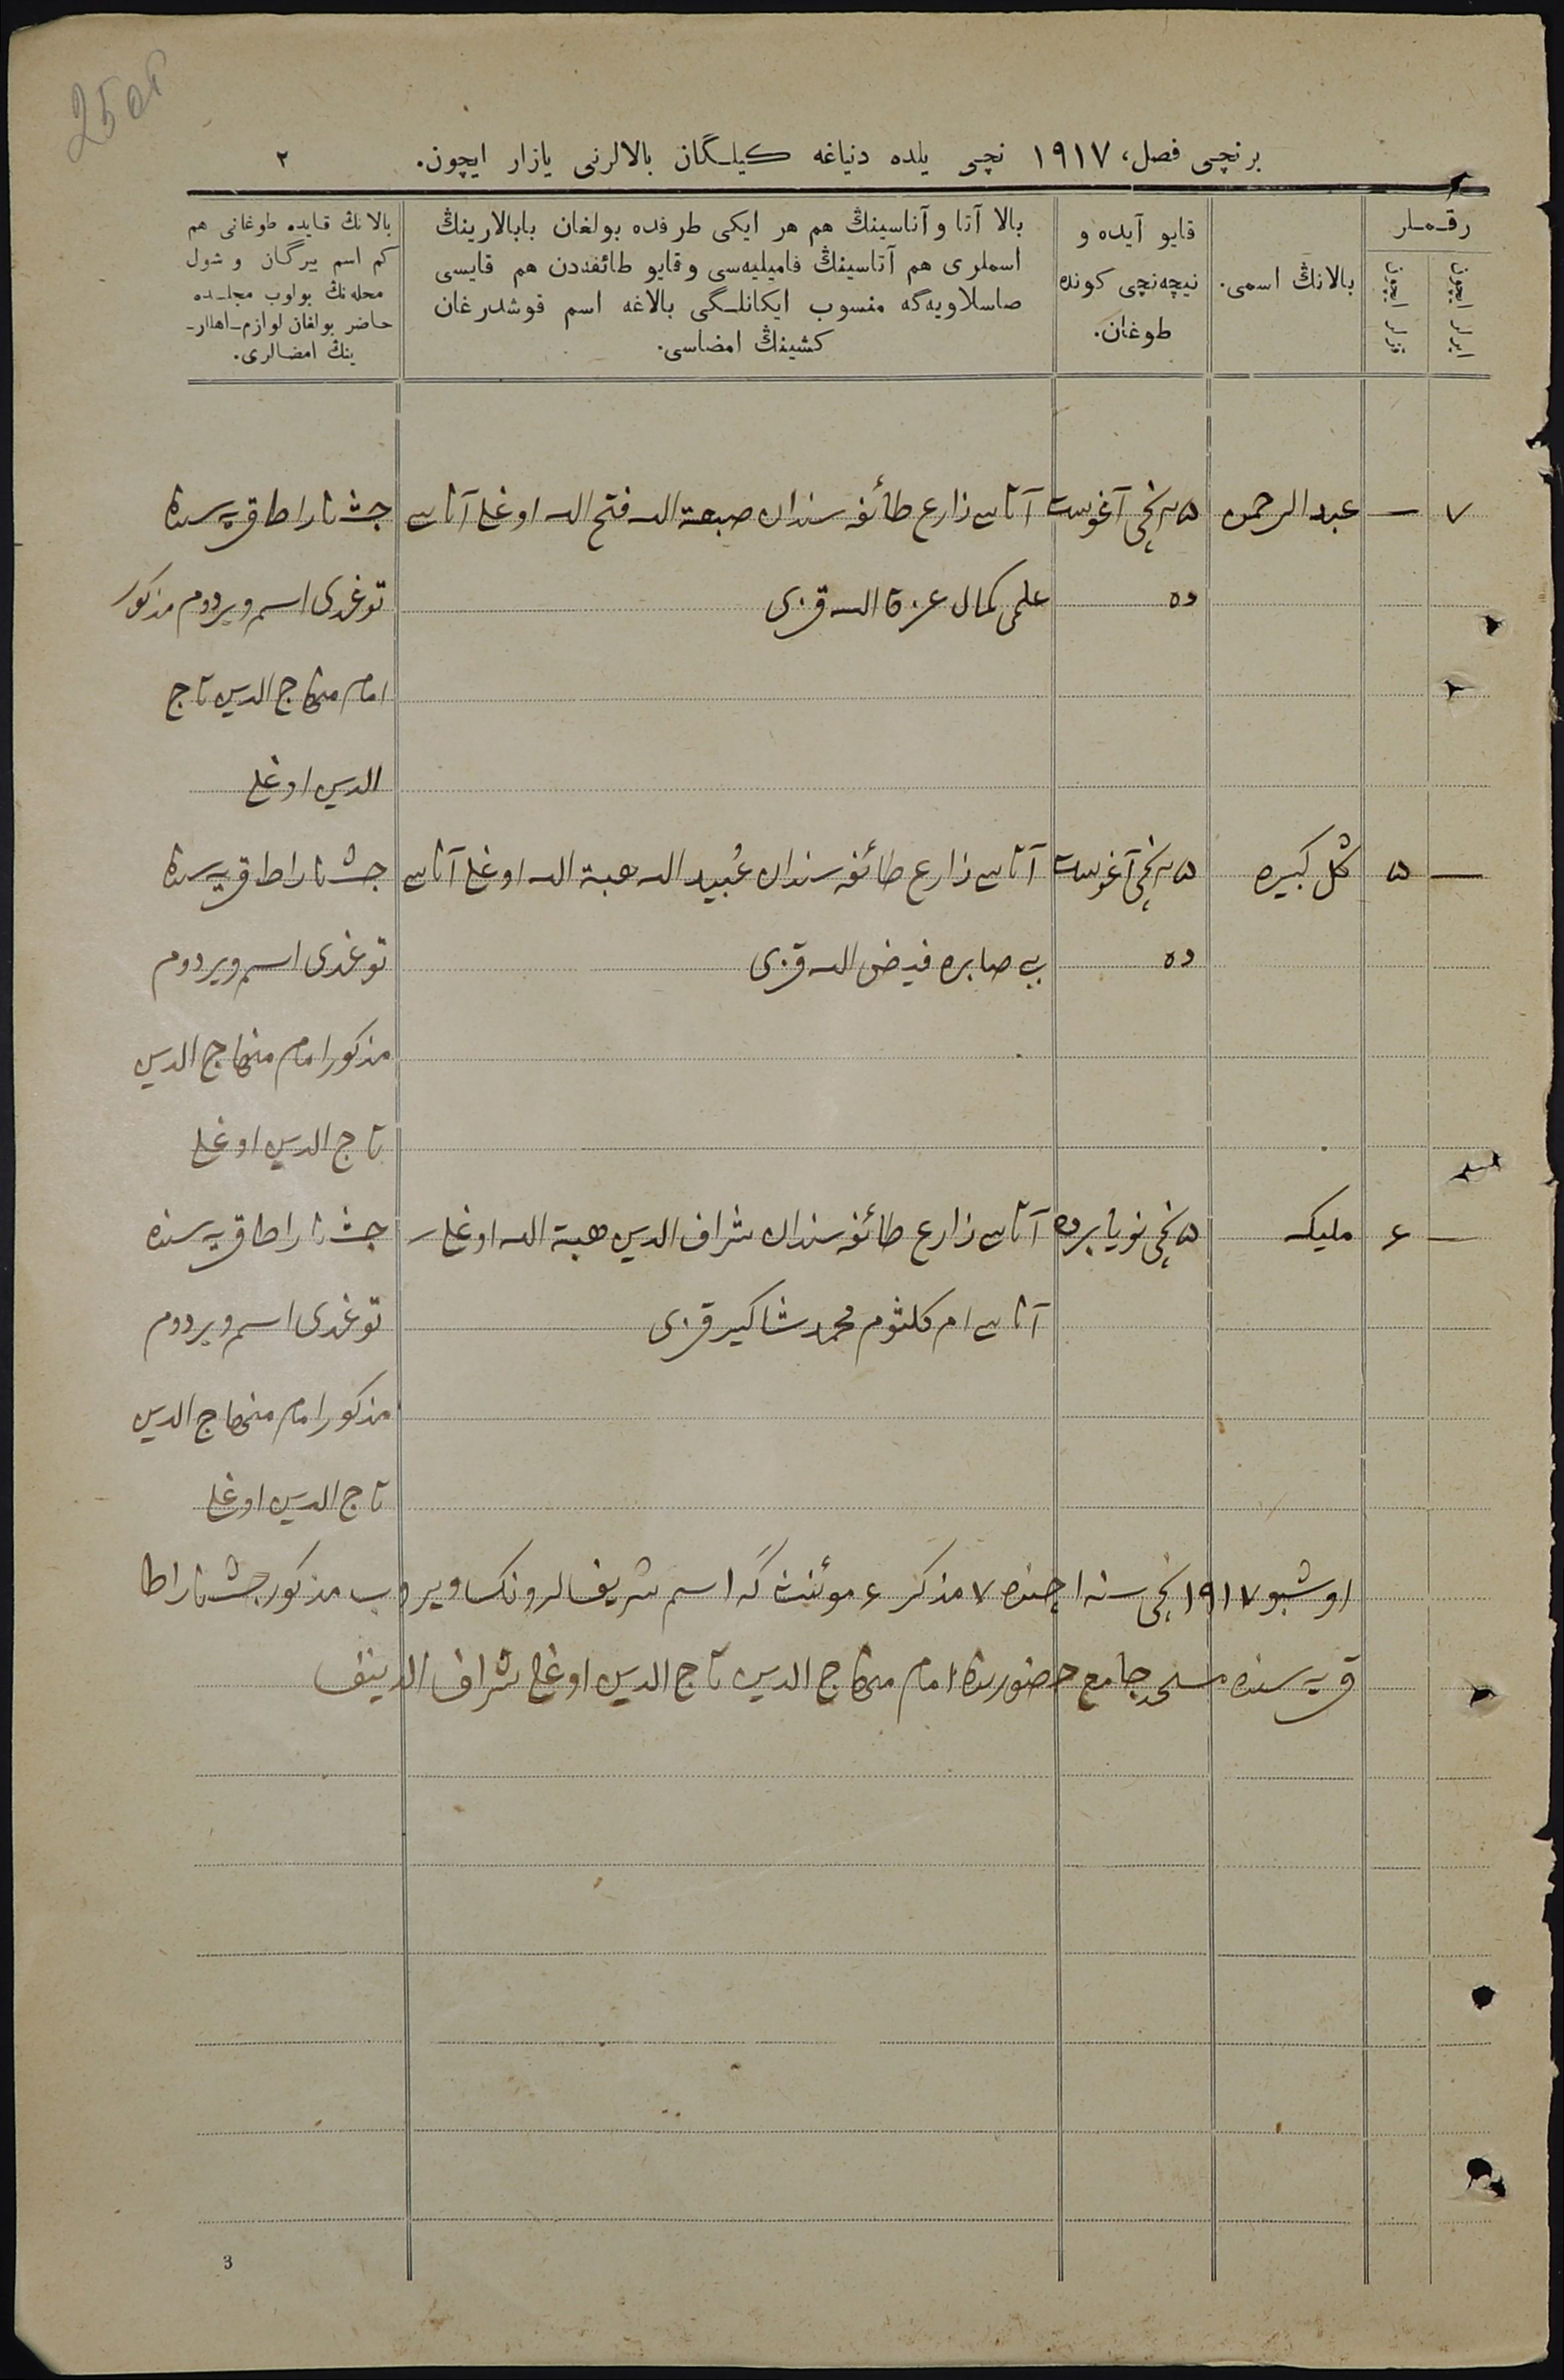 250б
برنچی فصل، ۱۹۱۷ نچی یلده دنیاغه کیلگان بالالرنی یازار ایچون. ۲
رقملر
ایرلر ایچون
قزلر ایچون
بالانڭ اسمی.
قایو آیده و
نیچه‌نچی کونده
طوغان.
بالا آتا و آناسینڭ هم هر ایکی طرفده بولغان بابالارینڭ
اسملری هم آتاسینڭ فامیلیه‌سی و قایو طائفه‌دن هم قایسی
صاسلاویه‌گه منسوب ایکانلگی بالاغه اسم قوشدرغان
کشینڭ امضاسی.
بالانڭ قایده طوغانی هم
کم اسم بیرگان و شول
محله‌نڭ بولوب مجلسده
حاضر بولغان لوازم اهللر-
ینڭ امضالری.
۷ — عبد الرحمن ۵ نچی آغوست آتاسی زارع طائفه سندان صبغة الله فتح الله اوغلی آناسی
ده علمی کمال عزة الله قزی
قریه سنده
توغدی اسم ویردوم مذکور
امام منهاج الدین تاج
الدین اوغلی
— ۵ گل کبیره ۵ نچی آغوست آتاسی زارع طائفه سندان عُبید الله هبة الله اوغلی آناسی
ده بی بی صابره فیض الله قزی
قریه سنده
توغدی اسم ویردوم
مذکور امام منهاج الدین
تاج الدین اوغلی
— ۶ ملیکه ۵ نچی نویابرده آتاسی زارع طائفه سندان شراف الدین هبة الله اوغلی
آناسی ام کلثوم محمد شاکیر قزی
قریه سنده
توغدی اسم ویردوم
مذکور امام منهاج الدین
تاج الدین اوغلی
اوشبو ۱۹۱۷ نچی سنه اچنده ۷ مذکر ۶ موئنث که اسم شریف لرونک ویروب مذکور
قریه سنده مسجد جامع حضورنده امام منهاج الدین تاج الدین اوغلی شراف الدینف
3